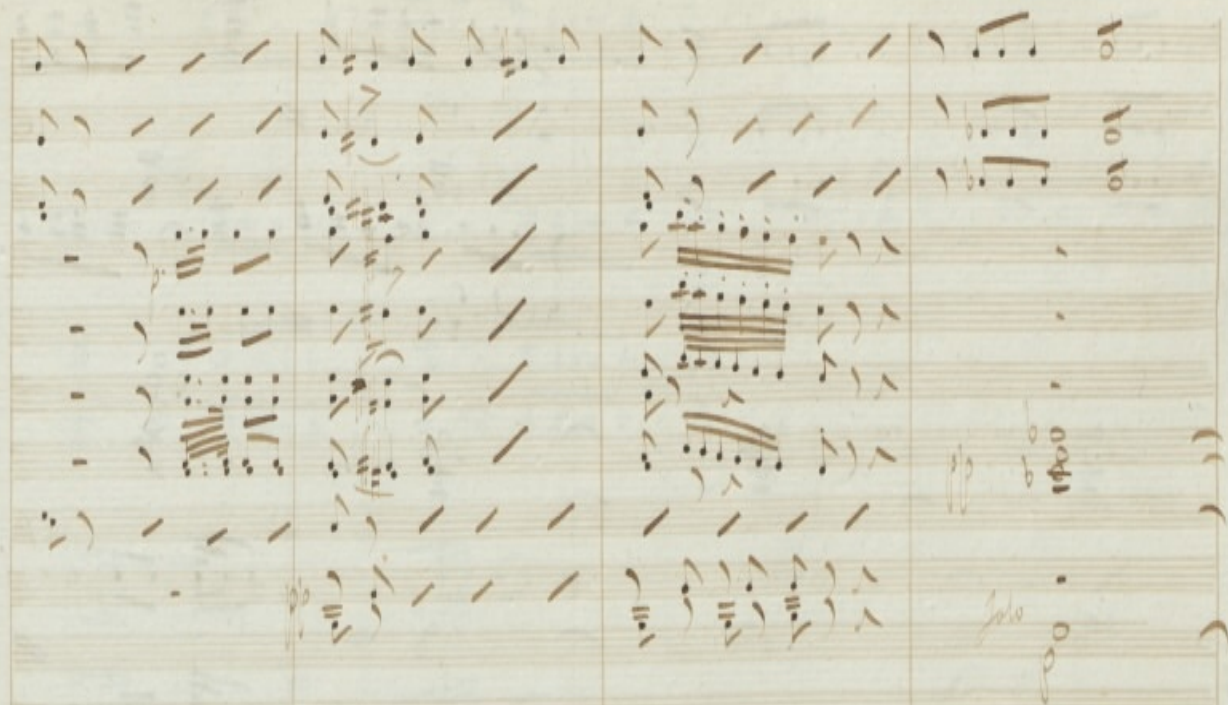 p.
pp
pp
Solo